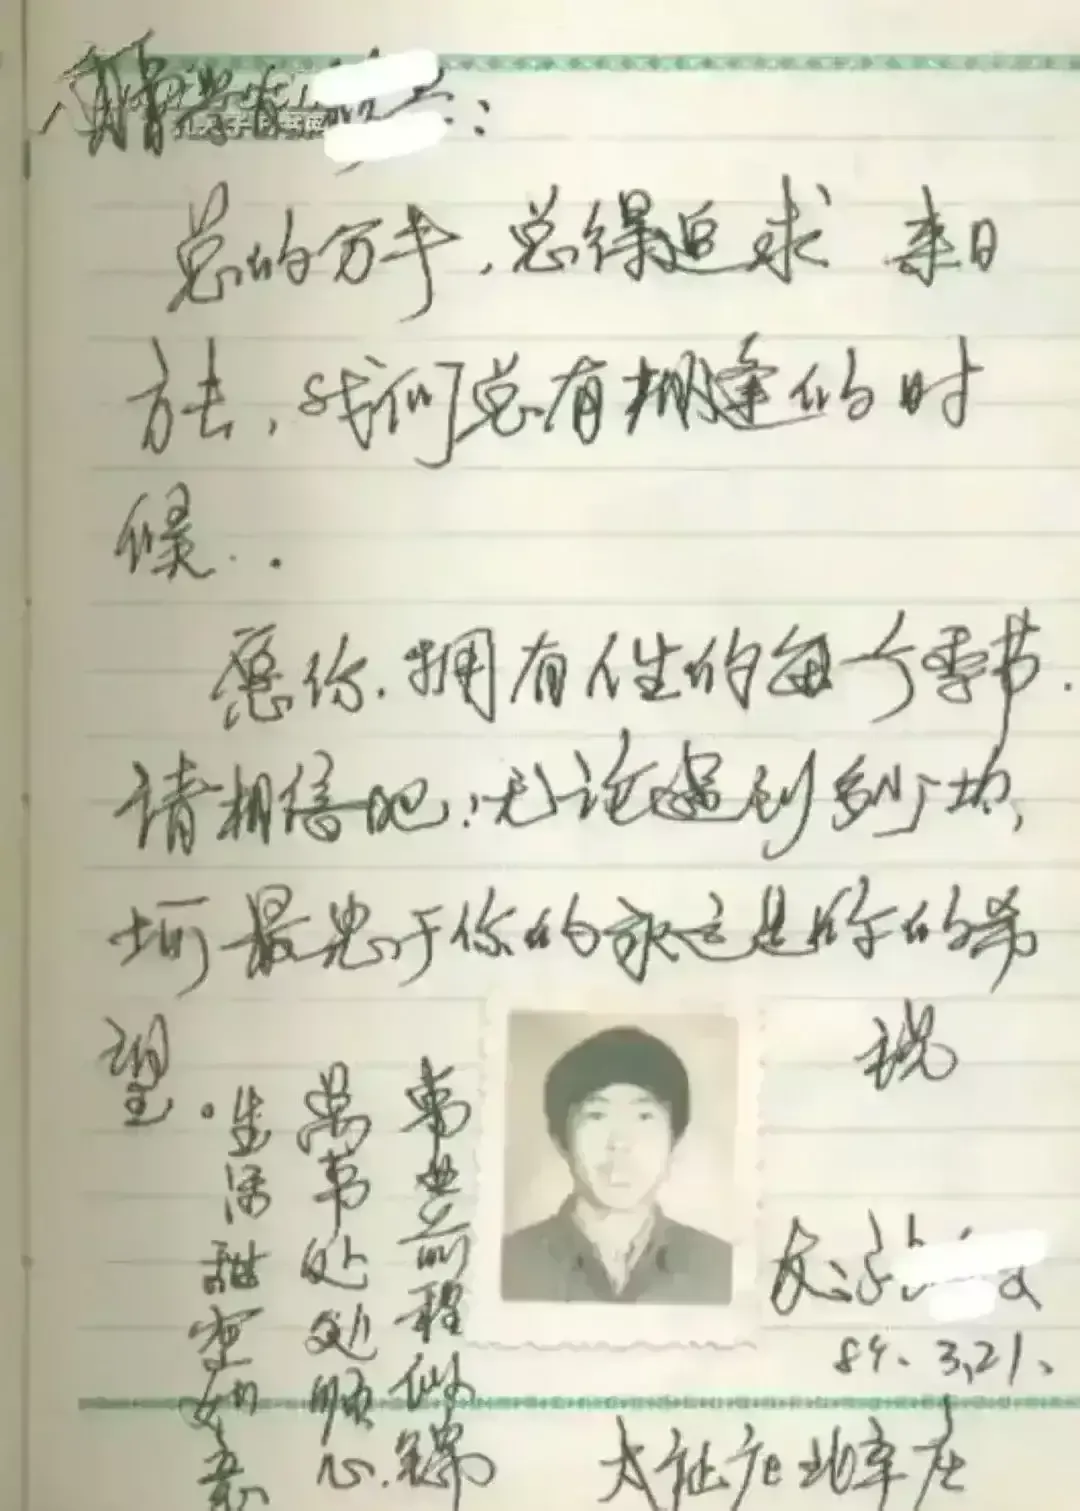 总的分手，总得追求 来日
方长，我们总有相逢的时
候..
愿你.拥有人生的每个季节.
请相信吧！无论遇到多少坎
坷 最忠于你的永远是你的希
望.
祝
事业前程似锦
万事处处顺心.
生活甜蜜如意
友:
84.3,21.
北车庄